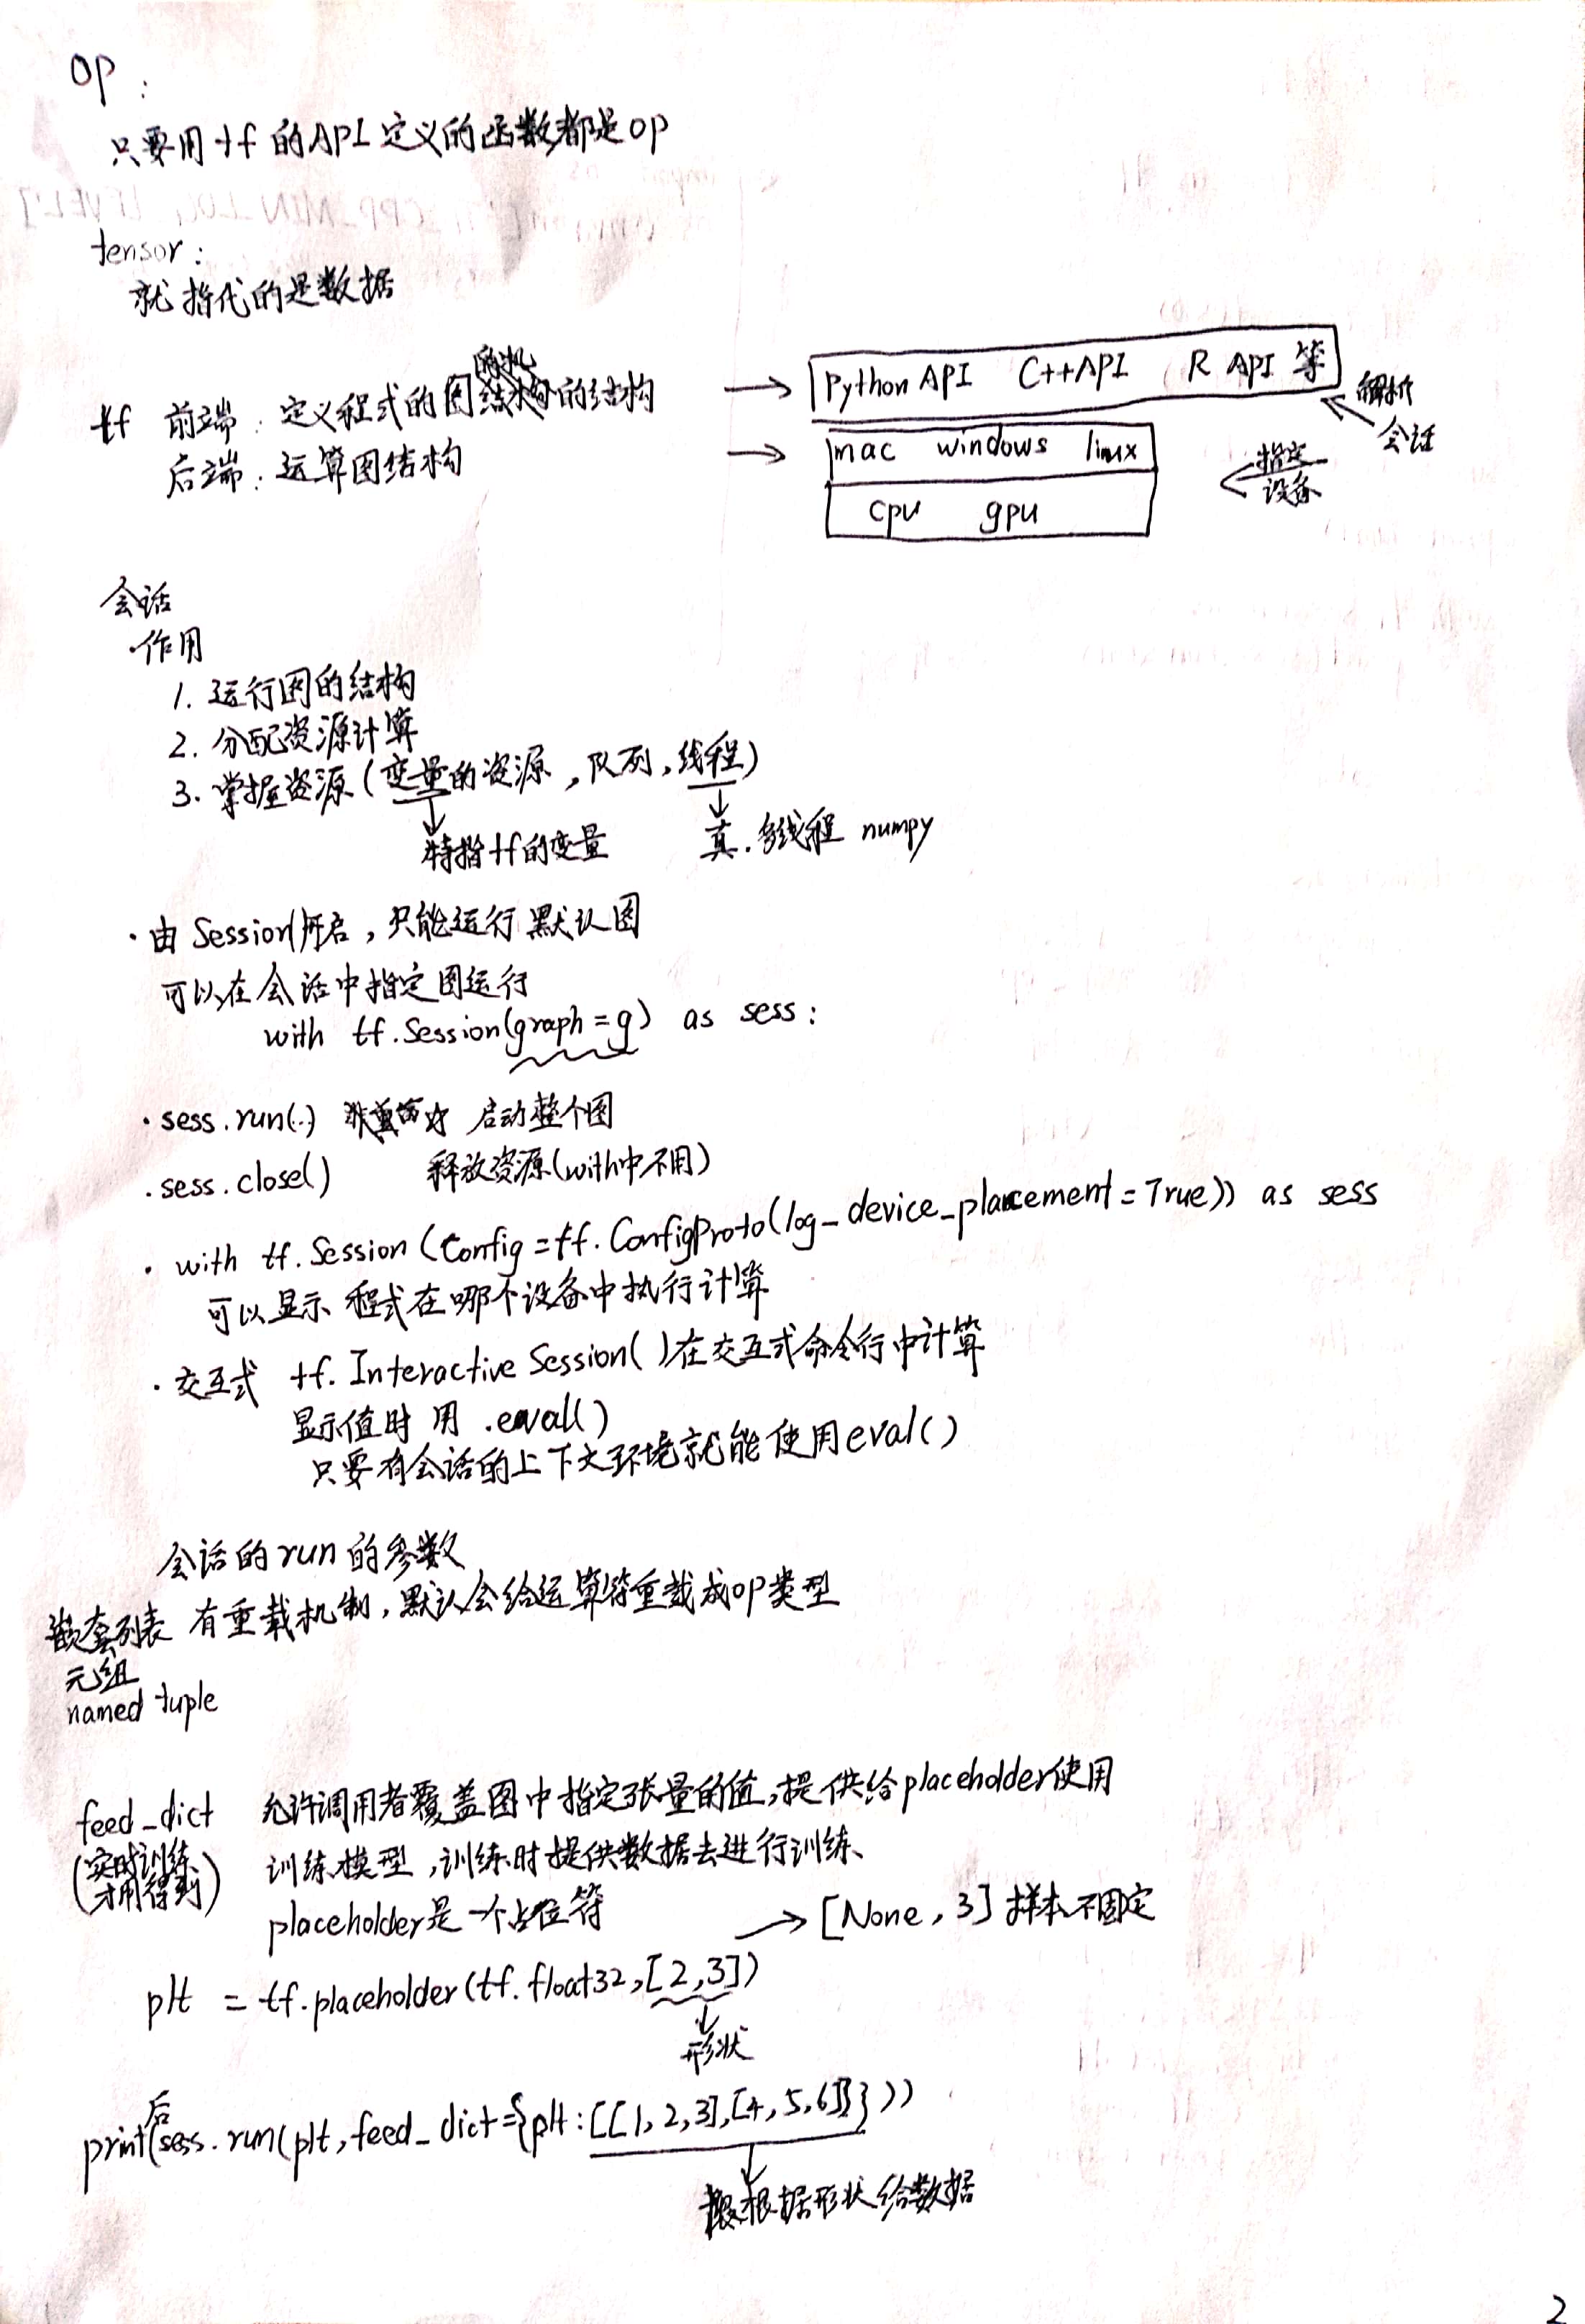 op:
只要用tf的API定义的函数都是op
tensor:
就指代的是数据
tf 前端: 定义程式的图的结构
后端: 运算图结构
→ Python API C++API R API 等
解析
会话
→ mac windows linux
指定
设备
cpu gpu
会话
·作用
1. 运行图的结构
2. 分配资源计算
3. 掌握资源(变量的资源,队列,线程)
特指tf的变量 真.多线程 numpy
·由Session开启,只能运行默认图
可以在会话中指定图运行
with tf.Session(graph=g) as sess:
·sess.run(..) 启动整个图
·sess.close() 释放资源(with中不用)
· with tf.Session(config=tf.ConfigProto(log_device_placement=True)) as sess
可以显示 程式在哪个设备中执行计算
·交互式 tf.InteractiveSession()在交互式命令行中计算
显示值时 用 .eval()
只要有会话的上下文环境就能使用eval()
会话的run的参数
嵌套列表 有重载机制,默认会给运算符重载成op类型
元组
named tuple
feed_dict 允许调用者覆盖图中指定张量的值,提供给placeholder使用
(实时训练 训练模型,训练时提供数据去进行训练、
才用得到)
placeholder是一个占位符
→ [None, 3] 样本不固定
plt = tf.placeholder(tf.float32,[2,3])
形状
后
print(sess.run(plt,feed_dict={plt:[[1,2,3],[4,5,6]]}))
根据形状给数据
2